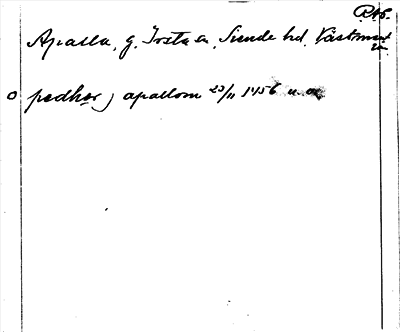 Apalla, g. Irsta sn, Siende hd. Västman
o pedher j apallom 23/11 1456